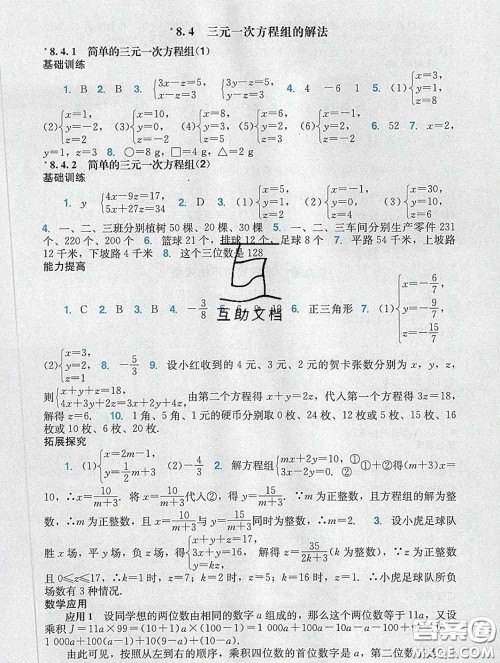 *8.4 三元一次方程组的解法
*8.4.1 简单的三元一次方程组(1)
基础训练
1. B 2. B 3. {3x-z=5, x-z=3} 4. 4 -6 1 5. (1){x=3, y=5, z=8}
(2){x=1, y=-2, z=3} (3){x=5, y=0, z=-10} (4){x=1, y=2, z=-2} (5){x=3, y=-2, z=5} 6. 52 7. x=2,
y=1,z=3 8. ○=8 g,□=4 g,△=2 g
*8.4.2 简单的三元一次方程组(2)
基础训练
1. y {4x-9z=17, 5x+27z=34} 2. D 3. (1){x=5, y=-2, z= (2){x=3, y=4, z=5}
4. 一、二、三班分别植树 50 棵、20 棵、30 棵 5. 一、二、三车间分别生产零件 231
个、220 个、200 个 6. 篮球 21 个,排球 12 个,足球 8 个 7. 平路 54 千米,上坡路
12 千米,下坡路 4 千米 8. 这个三位数是 128
能力提高
1. C 2. B 3. B 4. -3/8 6. 正三角形 7. (1){x=-6/7, y=9/7, z=-15/7}
互助文档
(2){x=3, y=2, z=1} 8. -5/3 9. 设小红收到的 4 元、3 元、2 元的贺卡张数分别为 x,y,z,
则{x+y+z=18, 4x+3y+2z=3(x+y+z)} 由第二个方程得 x=z,代入第一个方程得 2x+y=18,
解得 z=6. 10. 1 角、5 角、1 元的硬币分别取 0 枚、24 枚、12 枚或 5 枚、15 枚、16
枚或 10 枚、6 枚、20 枚.
拓展探究
1. (1){x=2m-1, y=1/2m+3} (2)-4/3 2. 解方程组{mx+2y=10,① 3x-2y=0,②} ①+②得(m+3)x=
10,∴x=10/(m+3).将 x=10/(m+3)代人②,得 y=15/(m+3),∵m 为正整数,且方程组的解为整
数,∴m+3 是正整数,且 x=10/(m+3)与 y=15/(m+3)同时为整数,∴m=2. 3. 设小虎足球队
胜 x 场,平 y 场,负 z 场,得{x+y+z=17, 3x+y=16, z=ky,} 解得 z=35/(2k+3)(k 为整数),又∵z 为正整数,
且 0≤z≤17,∴k=1 时,z=7;k=2 时,z=5;k=16 时,z=1. ∴小虎足球队所负
场数有 3 种情况.
数学应用
应用 1 设同学想的两位数由相同的数字 a 组成的,那么这个两位数等于 11a,又设
乘积 J=11a×99=(10+1)a×(100-1)=
由此可见,按照从左到右的顺序,乘积四位数的首位数是 a,第二位数